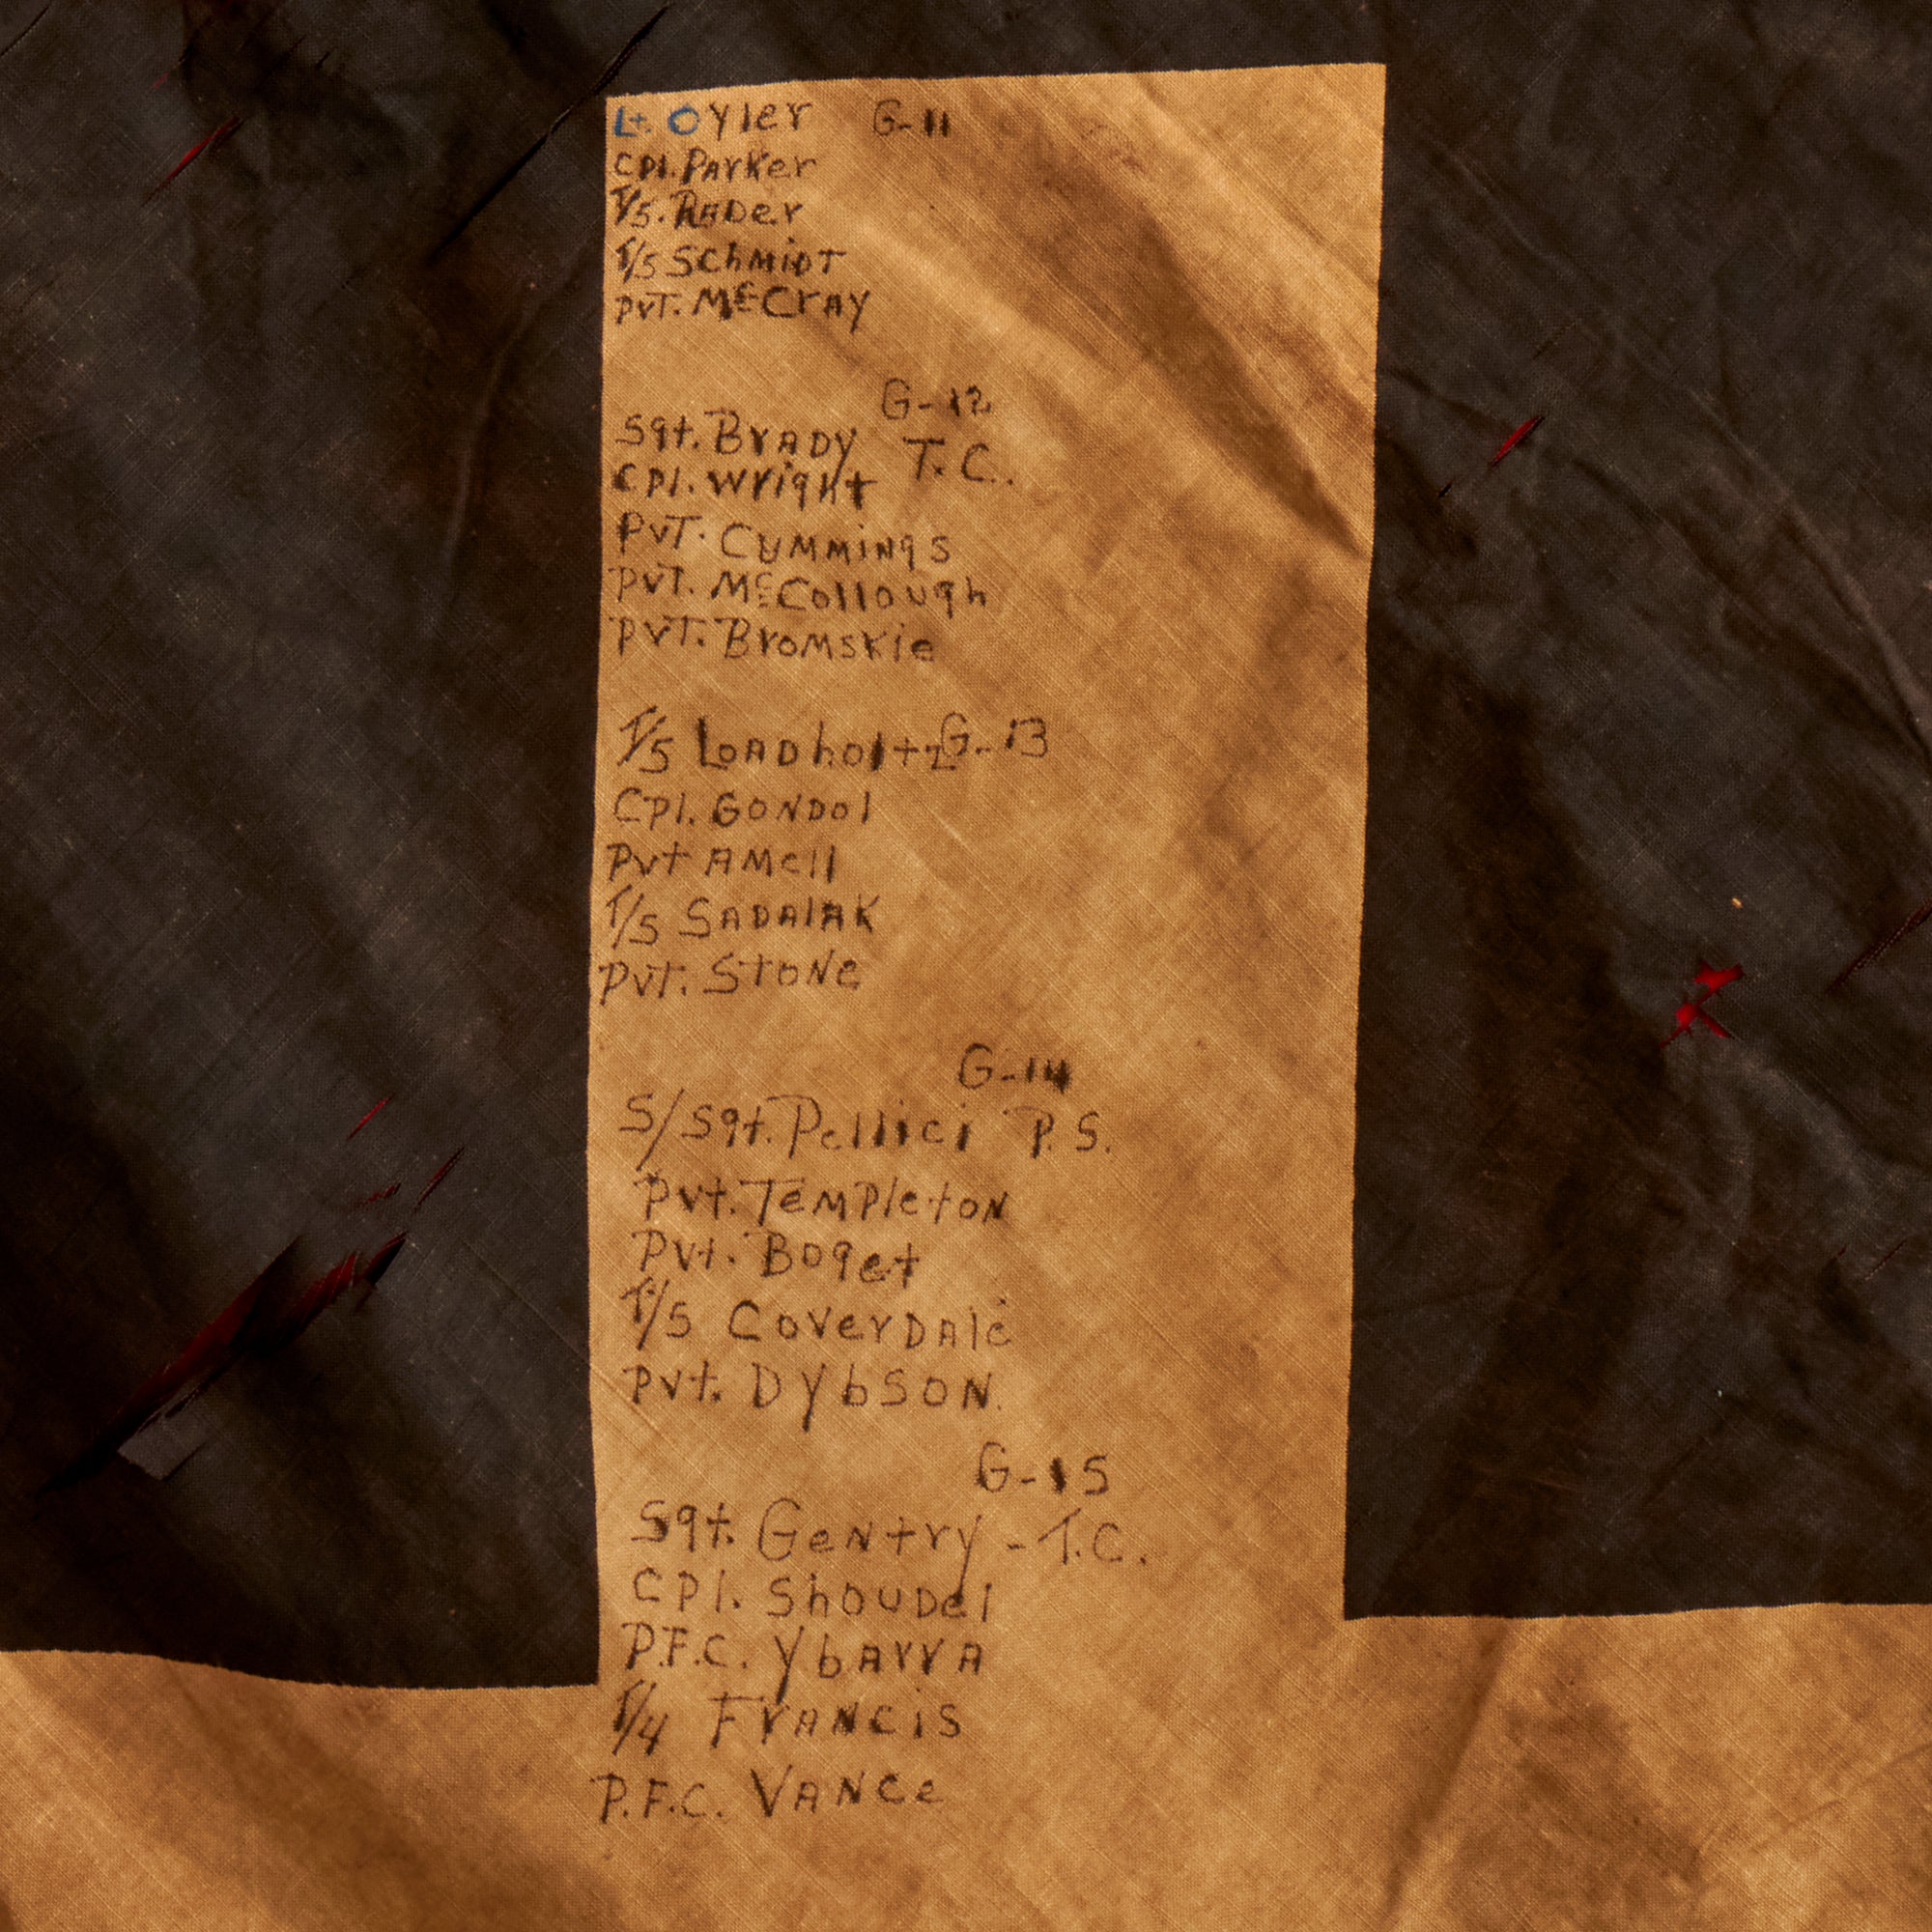 Lt. Oyler G-11
Cpl. Parker
T/5. Rader
T/5 Schmidt
Pvt. McCray
G-12
Sgt. Brady T.C.
Cpl. Wright
Pvt. Cummings
Pvt. McCollough
Pvt. Bromskie
T/5 Loadholt G-13
Cpl. Gondol
Pvt Amell
T/5 Sadalak
Pvt. Stone
G-14
S/Sgt. Pellici P.S.
Pvt. Templeton
Pvt. Boget
T/5 Coverdale
Pvt. Dybson.
G-15
Sgt. Gentry - T.C.
Cpl. Shoudel
P.F.C. Ybarra
T/4 Francis
P.F.C. Vance